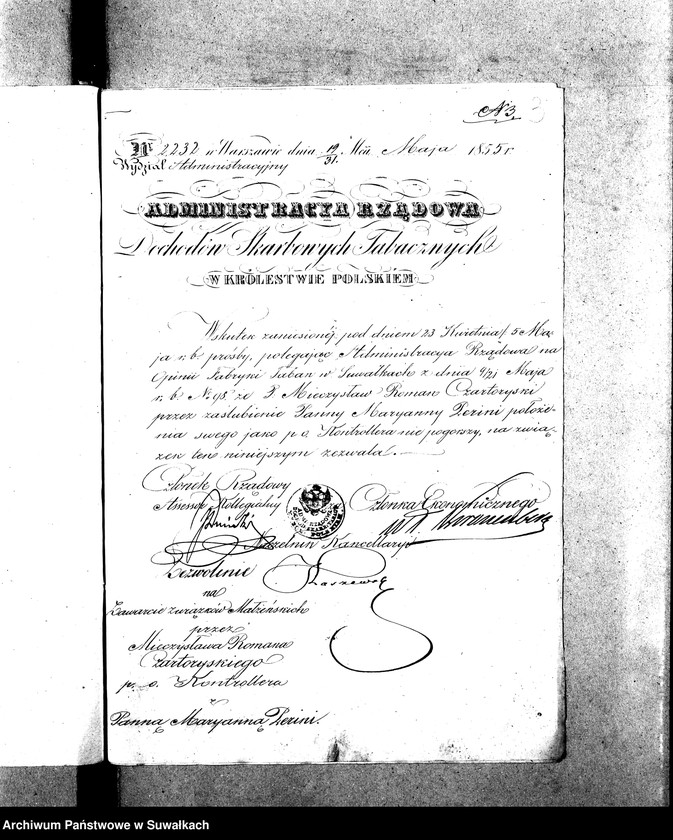 N 3. 3
Nr 2232 w Warszawie dnia 19/31. Mca Maja 1855 r.
Wydział Administracyjny
ADMINISTRACYA RZĄDOWA
Dochodów Skarbowych Tabacznych
W KRÓLESTWIE POLSKIEM
Wskutek zaniesionéj pod dniem 23 Kwietnia/5 Ma-
ja r. b. prośby, polegając Administracya Rządowa na
Opinii Fabryki Tabak w Suwałkach z dnia 9/21 Maja
r. b. N 98. że P. Mieczysław Roman Czartoryski
przez zaślubienie Panny Maryanny Perini położe-
nia swego jako p. o. Kontrollera nie pogorszy, na zwią-
zek ten niniejszym zezwala.
Członek Rządowy
Assessor Kollegialny
Członka Ekonomicznego
Naczelnik Kancellaryi
Zezwolenie
na
Zawarcie związków Małżeńskich
przez
Mieczysława Romana
Czartoryskiego
p. o. Kontrollera
z
Panną Maryanną Perini.
Archiwum Państwowe w Suwałkach